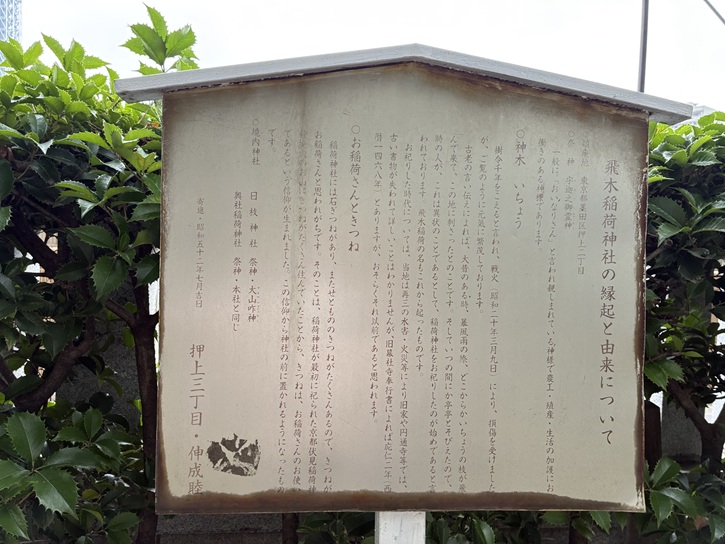 飛木稲荷神社の縁起と由来について
東京都墨田区押上二丁目
祭　神　宇迦之御霊神
一般に、おいなりさん　と言われ親しまれている神様で農工・殖産・生活の加護にお
働きのある神様であります。
○神木　いちょう
樹令千年をこえると言われ、戦火　昭和二十年三月九日　により、損傷を受けました
が、ご覧のように元気に繁茂しております。
古老の言い伝えによれば、大昔のある時、暴風雨の際、どこからかいちょうの枝が飛
んで来て、この地に刺さったとのことです　そしていつの間にか亭亭とそびえたので、
時の人が、これは異状のことであるとして、稲荷神社をお祀りしたのが始めであると
われております　飛木稲荷の名もこれから起ったものです。
お祀りした時代については、当地は再三の水害・火災等により旧家や円通寺等では、
古い書物が失われて詳しいことはわかりませんが、旧幕社寺奉行書によれば応仁二年　西
暦一四六八年　とありますが、おそらくそれ以前であると思われます
○お稲荷さんときつね
稲荷神社には石ぎつねがあり、またせともののきつねがたくさんあるので、きつねが
お稲荷さんと思われがちです　そのことは、稲荷神社が最初に祀られた京都伏見稲荷神
きつねがたくさん住んでいたことから、きつねは、お稲荷さんのお使い
であるという信仰が生まれました。この信仰から神社の前に置かれるようになったもの
です。
○境内神社　日枝神社　祭神・大山咋神
奥社稲荷神社　祭神・本社と同じ
寄進・昭和五十二年七月吉日
押上三丁目・伸成睦